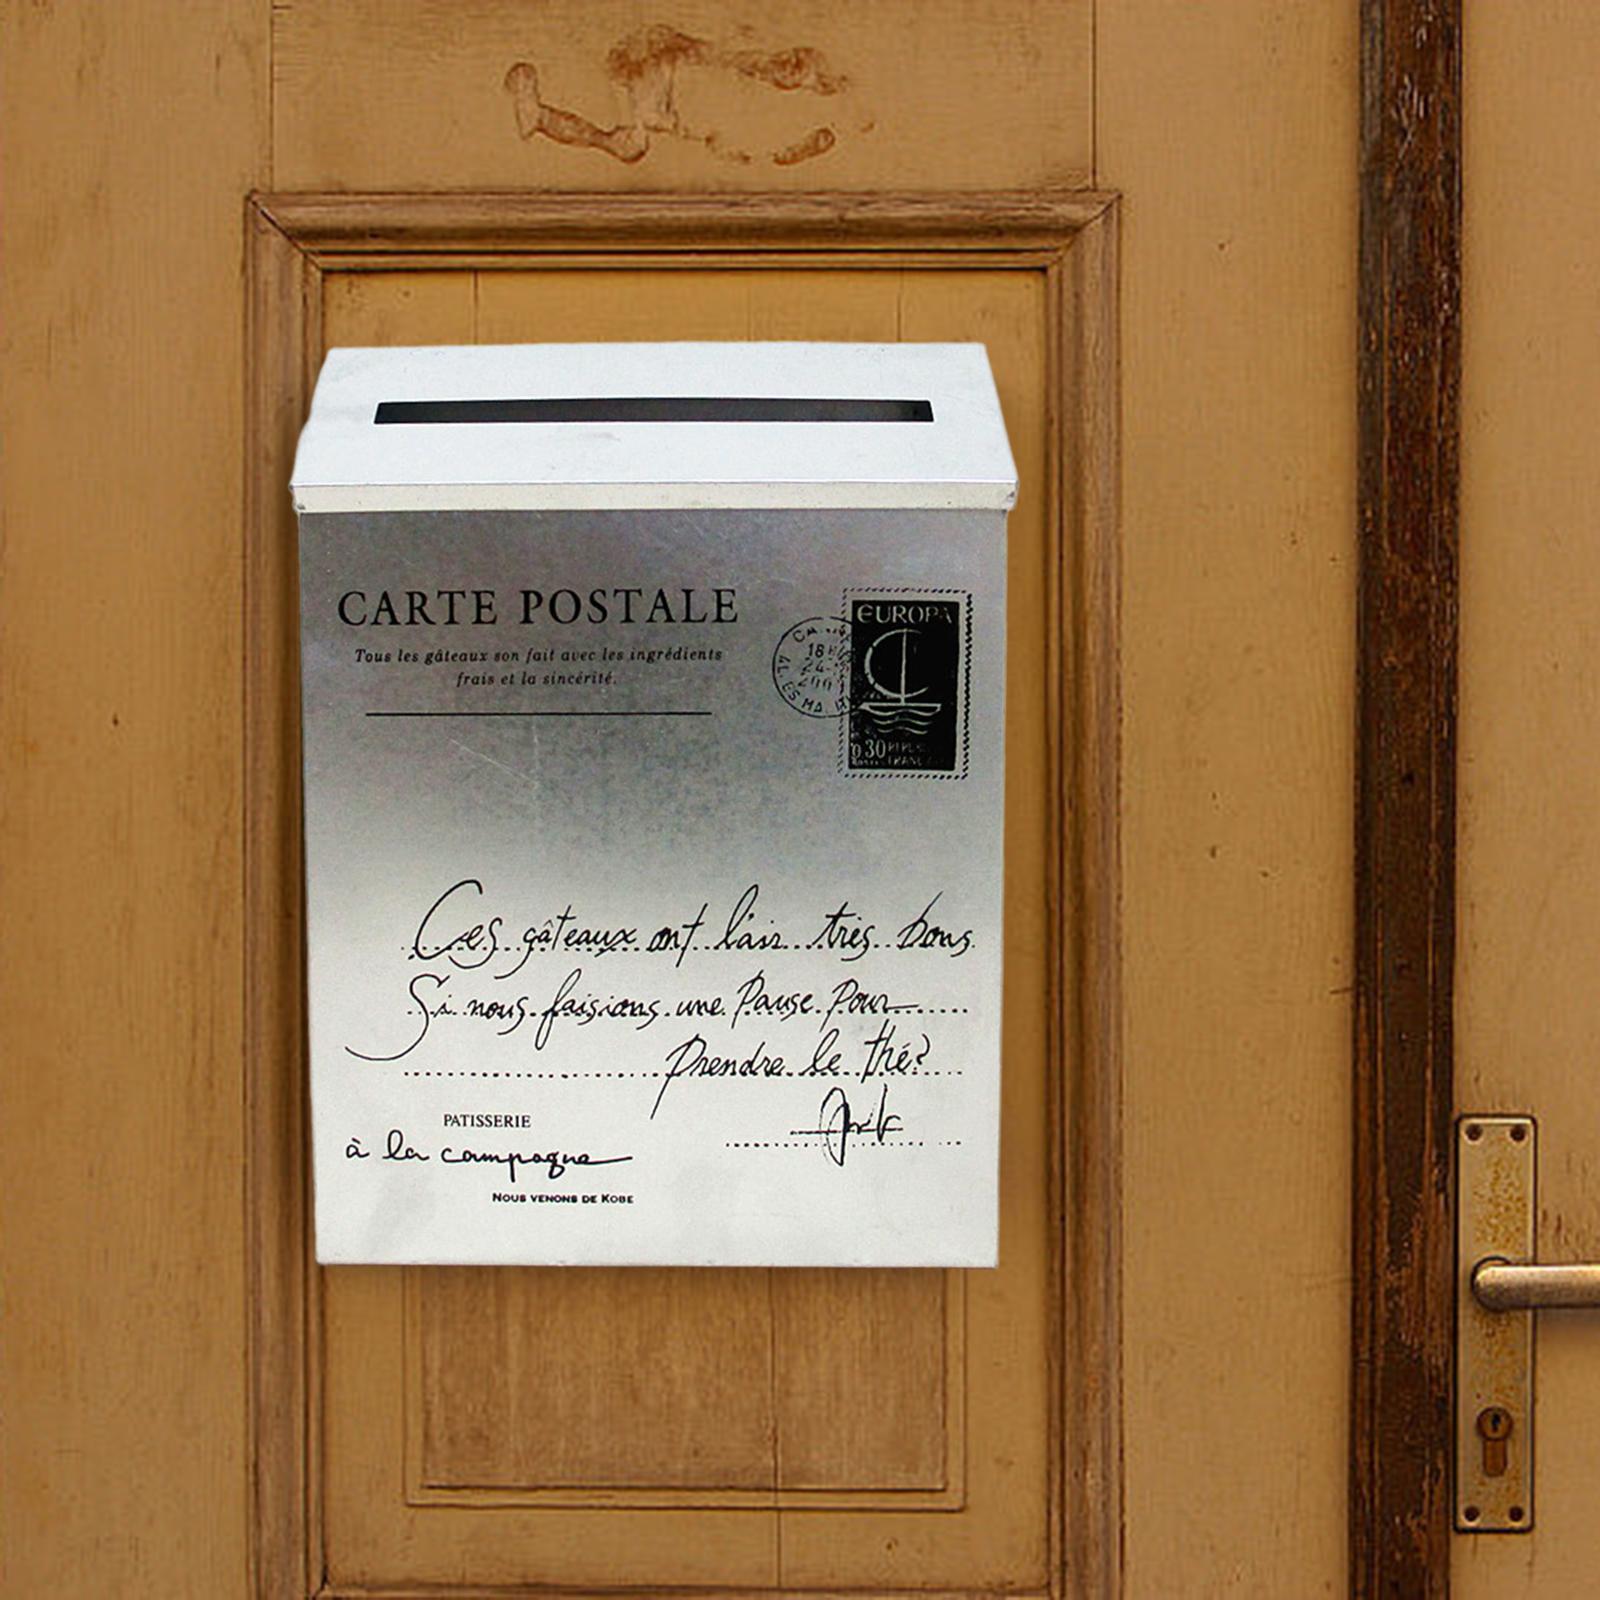 CARTE POSTALE
Tous les gâteaux son fait avec les ingrédients
frais et la sincérité.
EUROPA
0,30
Ces gâteaux ont l'air très bons.
Si nous faisions une Pause Pour
Prendre le thé?
PATISSERIE
à la campagne
NOUS VENONS DE KOBE